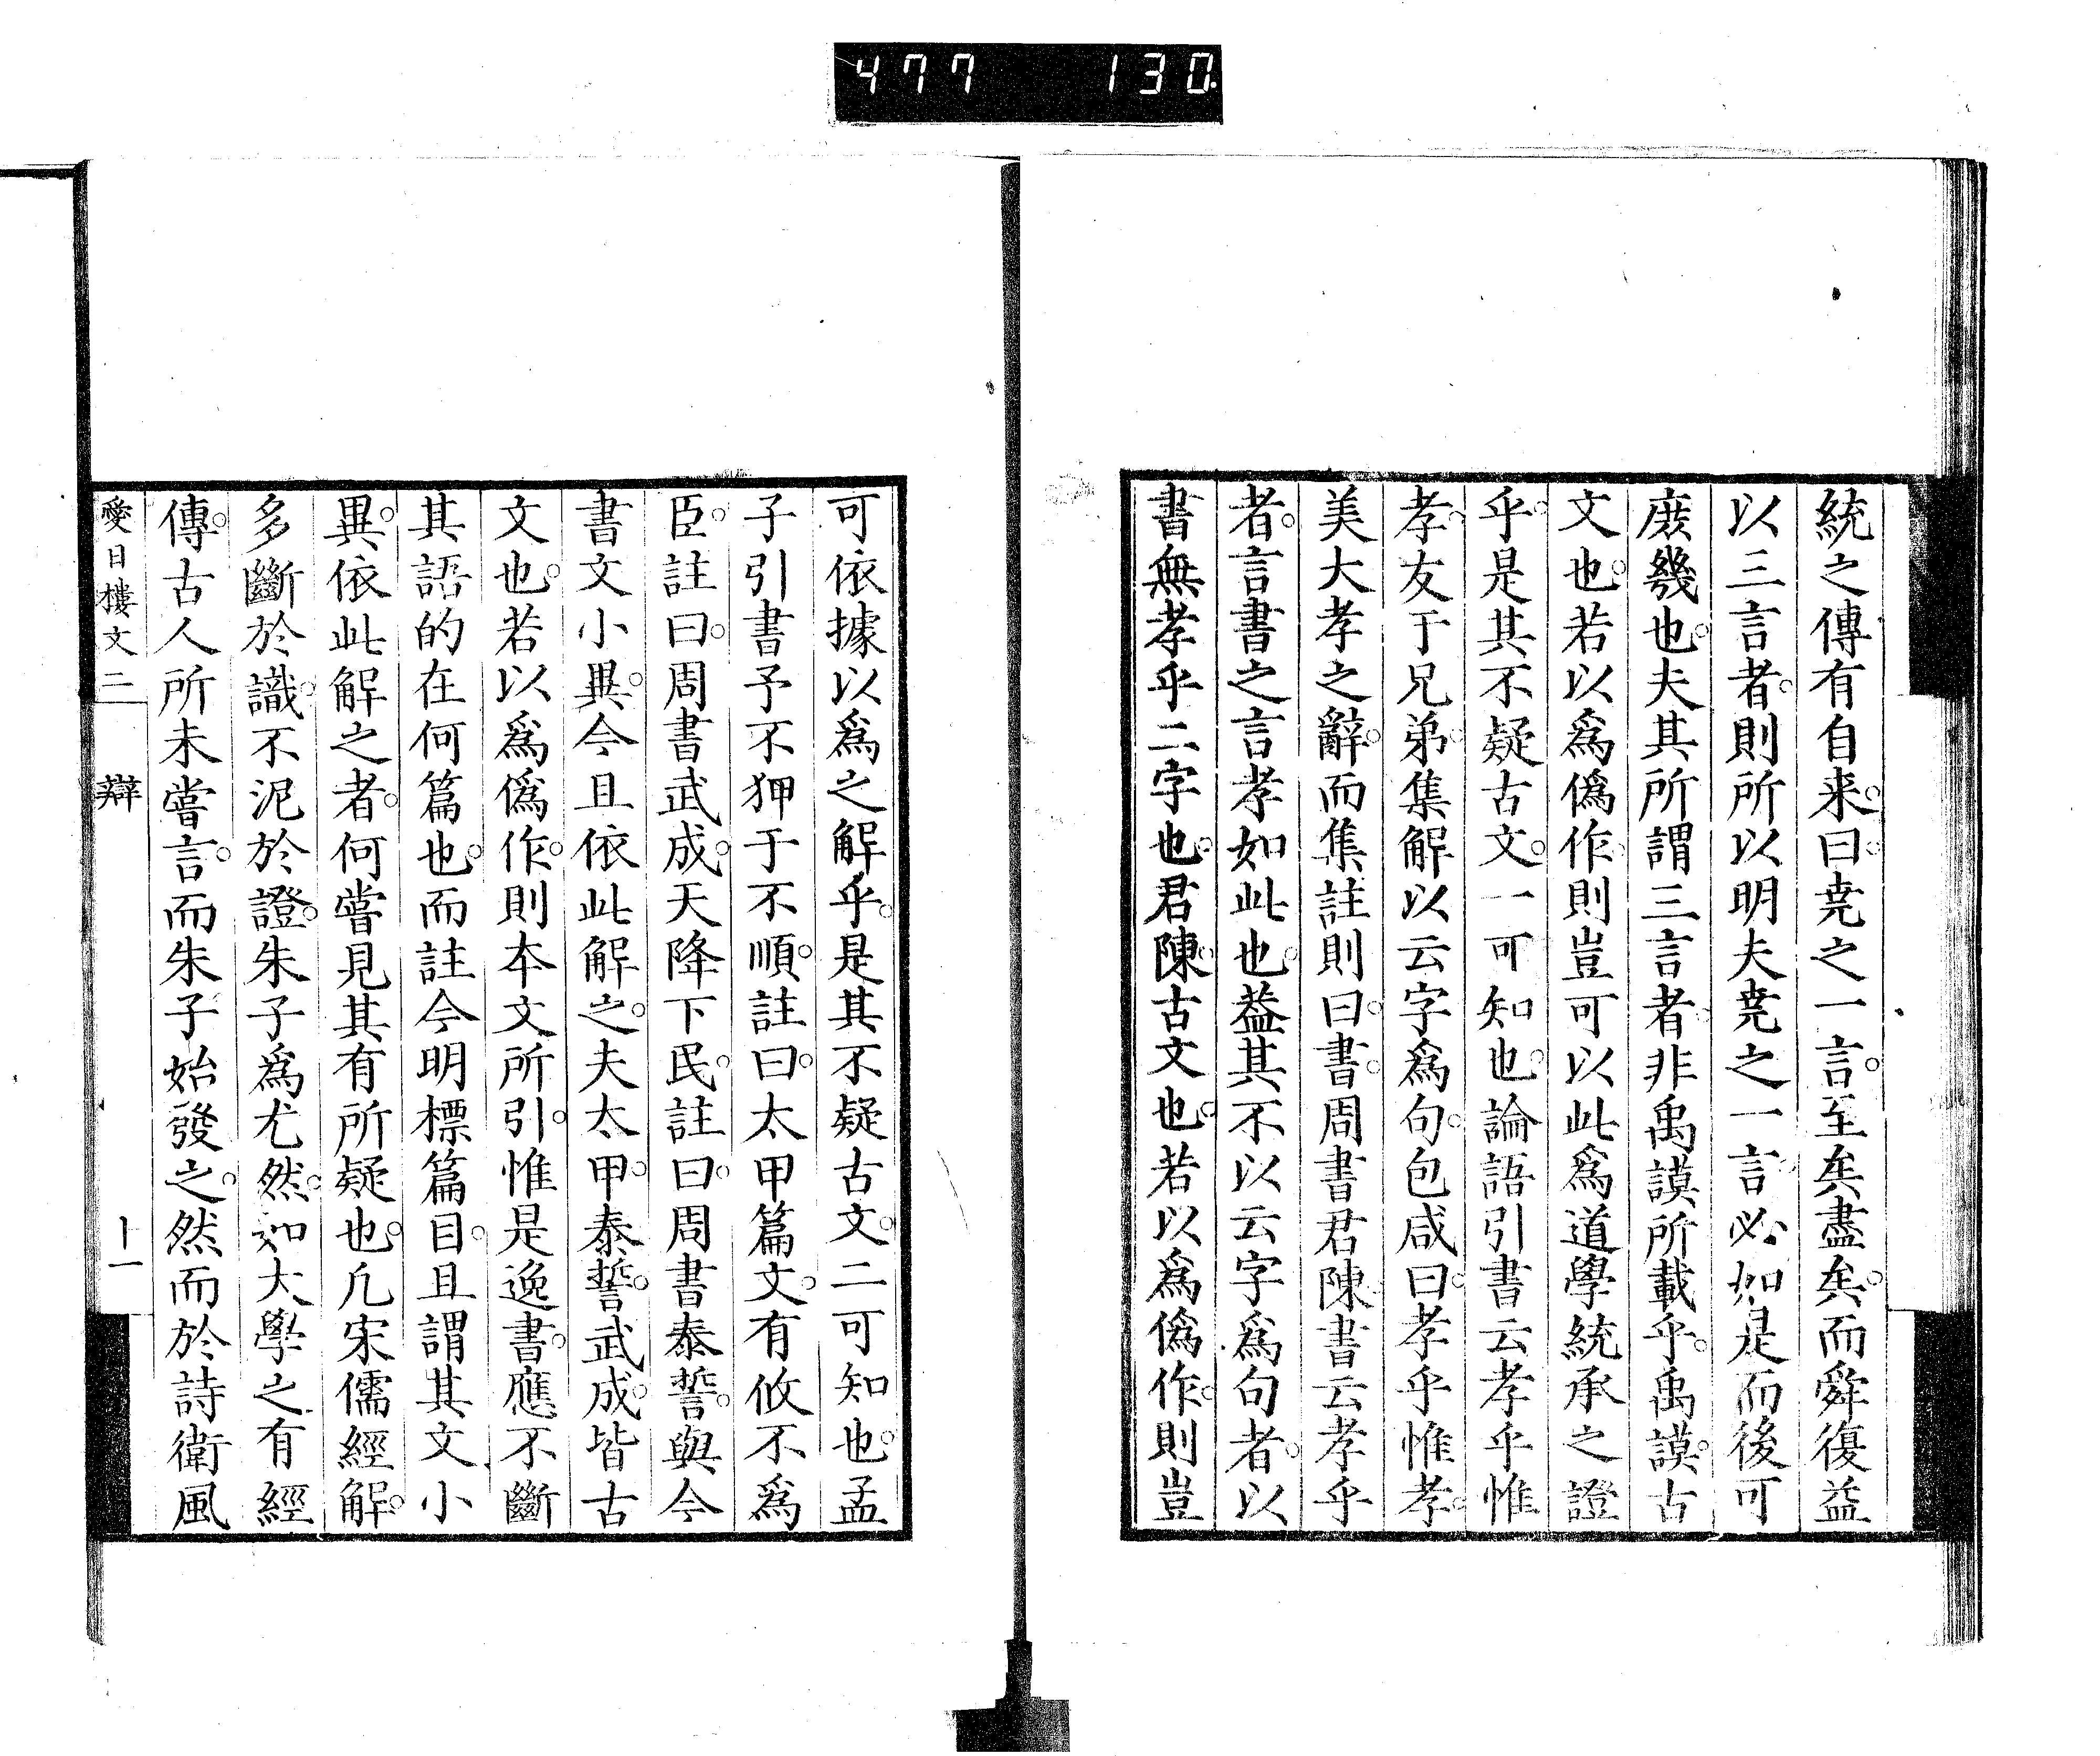 477 130
統之傳有自来。曰。尭之一言。至矣盡矣。而舜復益
以三言者。則所以明夫尭之一言。必如是而後可
庻幾也。夫其所謂三言者。非禹謨所載乎。禹謨。古
文也。若以爲僞作。則豈可以此爲道學統承之證
乎。是其不疑古文。一可知也。論語引書云孝乎惟
孝。友于兄弟。集解以云字爲句。包咸曰。孝乎惟孝。
美大孝之辭。而集註則曰。書。周書君陳書云孝乎
者。言書之言孝如此也。葢其不以云字爲句者。以
書無孝乎二字也。君陳。古文也。若以爲僞作。則豈
可依據以爲之解乎。是其不疑古文。二可知也。孟
子引書予不狎于不順。註曰。太甲篇文。有攸不爲
臣。註曰。周書武成。天降下民。註曰。周書泰誓。與今
書文小異。今且依此解之。夫太甲。泰誓。武成。皆古
文也。若以爲僞作。則本文所引。惟是逸書。應不斷
其語的在何篇也。而註今明標篇目。且謂其文小
異。依此解之者。何嘗見其有所疑也。凢宋儒經解。
多斷於識。不泥於證。朱子爲尤然。如大學之有經
傳。古人所未嘗言。而朱子始發之。然而於詩衛風
愛日樓文二 辯 十一